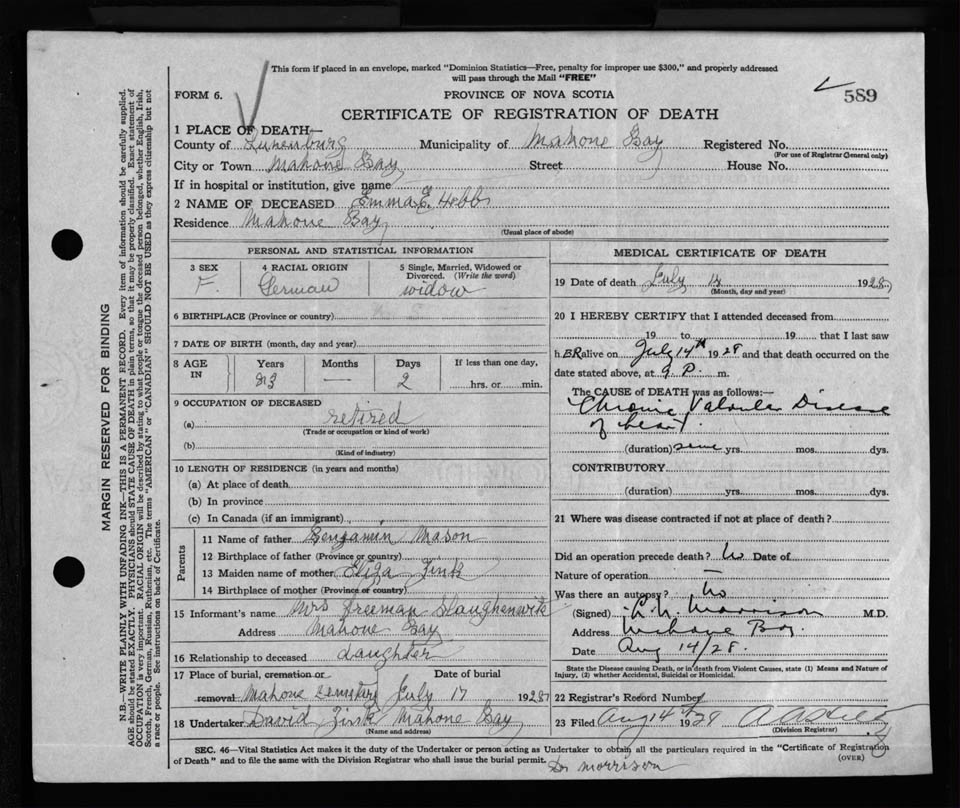 This form if placed in an envelope, marked "Dominion Statistics—Free, penalty for improper use $300," and properly addressed
will pass through the Mail "FREE"
FORM 6.
PROVINCE OF NOVA SCOTIA
589
CERTIFICATE OF REGISTRATION OF DEATH
1 PLACE OF DEATH—
County of Lunenburg Municipality of Mahone Bay Registered No.
(For use of Registrar General only)
City or Town Mahone Bay Street House No.
If in hospital or institution, give name
2 NAME OF DECEASED Emma E. Hebb
Residence Mahone Bay
(Usual place of abode)
PERSONAL AND STATISTICAL INFORMATION
3 SEX 4 RACIAL ORIGIN 5 Single, Married, Widowed or
Divorced. (Write the word)
F. German widow
6 BIRTHPLACE (Province or country)
7 DATE OF BIRTH (month, day and year)
8 AGE IN Years Months Days If less than one day,
— 2 hrs. or min.
9 OCCUPATION OF DECEASED
(a) retired
(Trade or occupation or kind of work)
(b)
(Kind of industry)
10 LENGTH OF RESIDENCE (in years and months)
(a) At place of death
(b) In province
(c) In Canada (if an immigrant)
Parents
11 Name of father Benjamin Mason
12 Birthplace of father (Province or country)
13 Maiden name of mother Eliza Zink
14 Birthplace of mother (Province or country)
15 Informant's name Mrs Freeman Slaughenwite
Address Mahone Bay
16 Relationship to deceased daughter
17 Place of burial, cremation or Date of burial
removal Mahone Cemetery July 17 1928
18 Undertaker David Zink Mahone Bay
(Name and address)
MEDICAL CERTIFICATE OF DEATH
19 Date of death July 14 1928
(Month, day and year)
20 I HEREBY CERTIFY that I attended deceased from
19 to 19 that I last saw
h ER alive on July 14th 1928 and that death occurred on the
date stated above, at 9 P. m.
The CAUSE of DEATH was as follows:—
Chronic Valvular Disease
of heart.
(duration) yrs. mos. dys.
CONTRIBUTORY
(duration) yrs. mos. dys.
21 Where was disease contracted if not at place of death?
Did an operation precede death? No Date of
Nature of operation —
Was there an autopsy? No
(Signed) Morrison M.D.
Address Mahone Bay
Date Aug 14/28.
State the Disease causing Death, or in death from Violent Causes, state (1) Means and Nature of
Injury, (2) whether Accidental, Suicidal or Homicidal.
22 Registrar's Record Number
23 Filed Aug 14 1928
(Division Registrar)
SEC. 46—Vital Statistics Act makes it the duty of the Undertaker or person acting as Undertaker to obtain all the particulars required in the "Certificate of Registration
of Death" and to file the same with the Division Registrar who shall issue the burial permit.
(OVER)
Dr Morrison
MARGIN RESERVED FOR BINDING
N.B.—WRITE PLAINLY WITH UNFADING INK—THIS IS A PERMANENT RECORD. Every item of information should be carefully supplied.
AGE should be stated EXACTLY. PHYSICIANS should STATE CAUSE OF DEATH in plain terms, so that it may be properly classified. Exact statement of
OCCUPATION is very important. RACIAL ORIGIN will be described by stating to what people or tongue the deceased person belonged, whether English, Irish,
Scotch, French, German, Russian, Ruthenian, etc. The terms "AMERICAN" or "CANADIAN" SHOULD NOT BE USED as they express citizenship but not
a race or people. See instructions on back of Certificate.